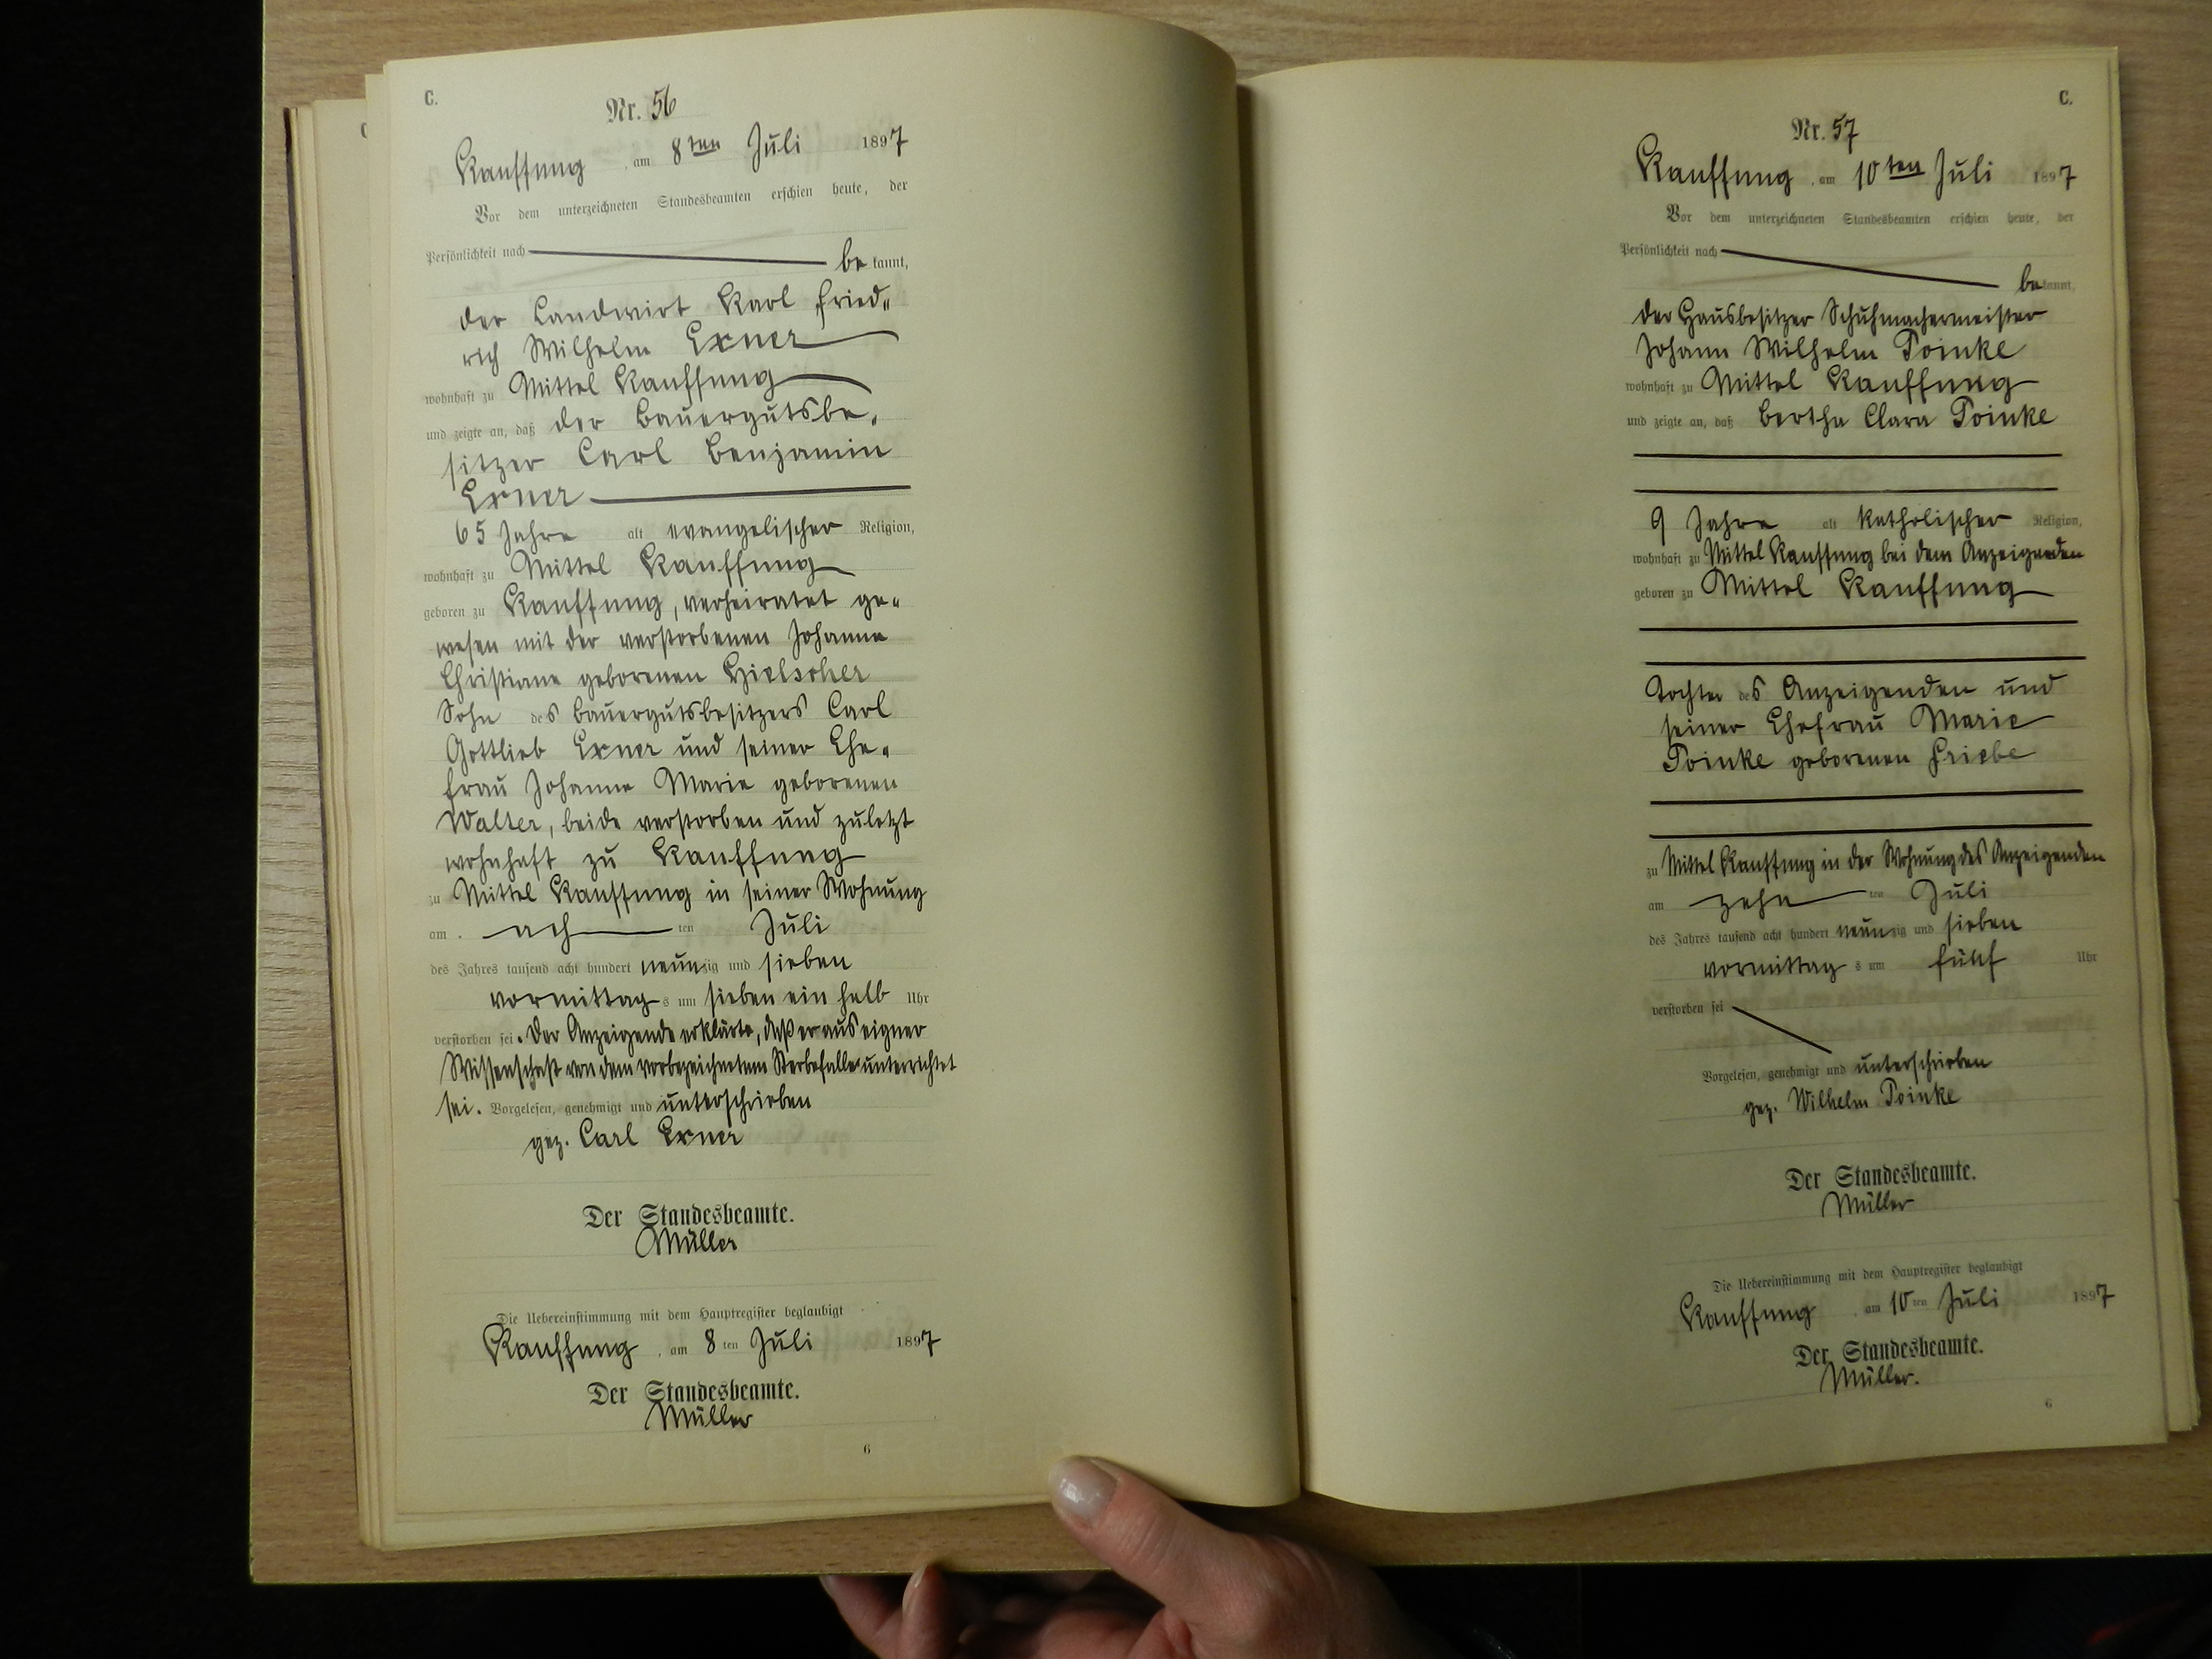 C.
Nr. 56
Kauffung, am 8ten Juli 1897
Vor dem unterzeichneten Standesbeamten erschien heute, der
Persönlichkeit nach
bekannt,
der Landwirt Karl Fried„
rich Wilhelm Exner
wohnhaft zu Mittel Kauffung
und zeigte an, daß der Bauergutsbe„
sitzer Carl Benjamin
Exner
65 Jahre alt evangelischer Religion,
wohnhaft zu Mittel Kauffung
geboren zu Kauffung, verheiratet ge„
wesen mit der verstorbenen Johanne
Christiane geborenen Hielscher
Sohn des Bauergutsbesitzers Carl
Gottlieb Exner und seiner Ehe„
frau Johanne Marie geborenen
Walter, beide verstorben und zuletzt
wohnhaft zu Kauffung
zu Mittel Kauffung in seiner Wohnung
am ach ten Juli
des Jahres tausend acht hundert neunzig und sieben
vormittags um sieben ein halb Uhr
verstorben sei. Der Anzeigende erklärte, daß er aus eigner
Wissenschaft von dem vorbezeichneten Sterbefalle unterrichtet
sei. Vorgelesen, genehmigt und unterschrieben
gez. Carl Exner
Der Standesbeamte.
Müller
Die Uebereinstimmung mit dem Hauptregister beglaubigt
Kauffung, am 8ten Juli 1897
Der Standesbeamte.
Müller
6
C.
Nr. 57
Kauffung, am 10ten Juli 1897
Vor dem unterzeichneten Standesbeamten erschien heute, der
Persönlichkeit nach
bekannt,
der Hausbesitzer Schuhmachermeister
Johann Wilhelm Poinke
wohnhaft zu Mittel Kauffung
und zeigte an, daß Bertha Clara Poinke
9 Jahre alt katholischer Religion,
wohnhaft zu Mittel Kauffung bei dem Anzeigenden
geboren zu Mittel Kauffung
Tochter des Anzeigenden und
seiner Ehefrau Marie
Poinke geborenen Friebe
zu Mittel Kauffung in der Wohnung des Anzeigenden
am zehn ten Juli
des Jahres tausend acht hundert neunzig und sieben
vormittags um fünf Uhr
verstorben sei
Vorgelesen, genehmigt und unterschrieben
gez. Wilhelm Poinke
Der Standesbeamte.
Müller
Die Uebereinstimmung mit dem Hauptregister beglaubigt
Kauffung, am 10ten Juli 1897
Der Standesbeamte.
Müller.
6